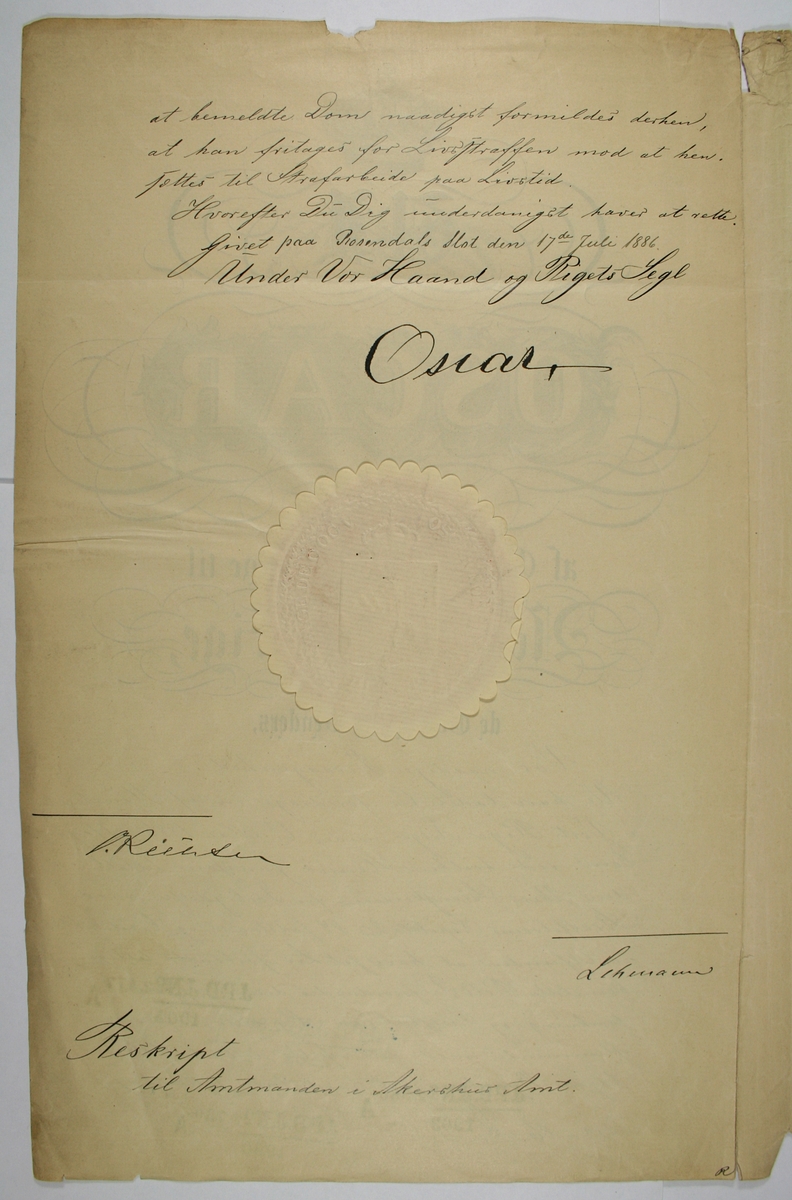 at bemeldte Dom naadigst formildes derhen,
at han fritages for Livsstraffen mod at hen-
sættes til Strafarbeide paa Livstid.
Hvorefter Du Dig underdanigst haver at rette.
Givet paa Rosendals Slot den 17de Juli 1886.
Under Vor Haand og Rigets Segl
Oscar.
O. Richter
Lehmann
Reskript
til Amtmanden i Akershus Amt.